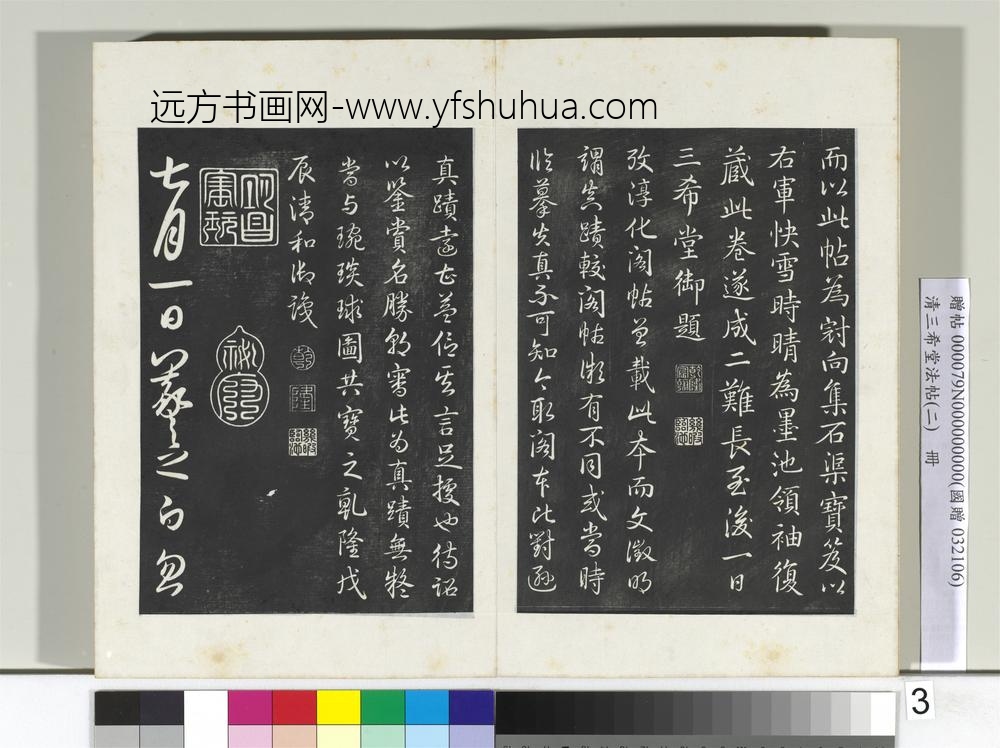 远方书画网-www.yfshuhua.com
而以此帖為對向集石渠寶笈以
右軍快雪時晴為墨池領袖復
藏此卷遂成二難長至後一日
三希堂御題
攷淳化閣帖曾載此本而文徵明
謂真蹟較閣帖微有不同或當時
臨摹失真不可知今取閣本比對遜
真蹟遠甚益信其言足援也待詔
以鑒賞名勝朝審此為真蹟無疑
當与琬琰球圖共寶之乾隆戊
辰清和御識
乾
隆
七月一日羲之白忽
贈帖 000079N000000000(國贈 032106)
清三希堂法帖(二) 冊
3